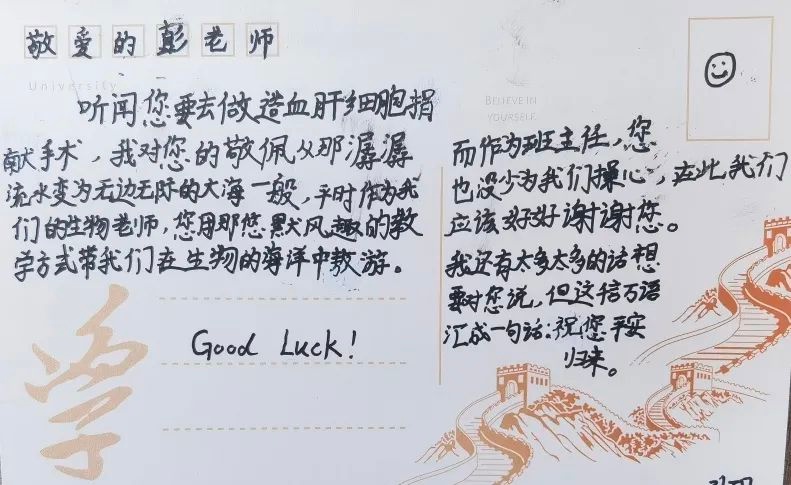 敬爱的彭老师
University
听闻您要去做造血肝细胞捐
献手术，我对您的敬佩从那潺潺
流水变为无边无际的大海一般，平时作为我
们的生物老师，您用那悠默风趣的教
学方式带我们在生物的海洋中敖游。
学
Good Luck!
BELIEVE IN
YOURSELF.
而作为班主任，您
也没少为我们操心，在此我们
应该好好谢谢您。
我还有太多太多的话想
要对您说，但这千言万语
汇成一句话：祝您平安
归来。